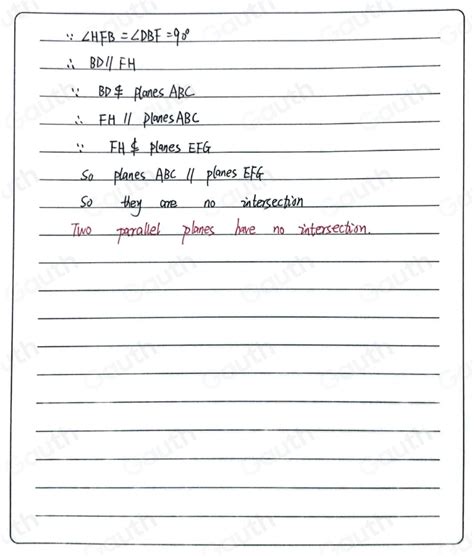 ∵ ∠HFB = ∠DBF = 90°
∴ BD // FH
∵ BD ⊄ planes ABC
∴ FH // planes ABC
∵ FH ⊄ planes EFG
So planes ABC // planes EFG
So they are no intersection
Two parallel planes have no intersection.